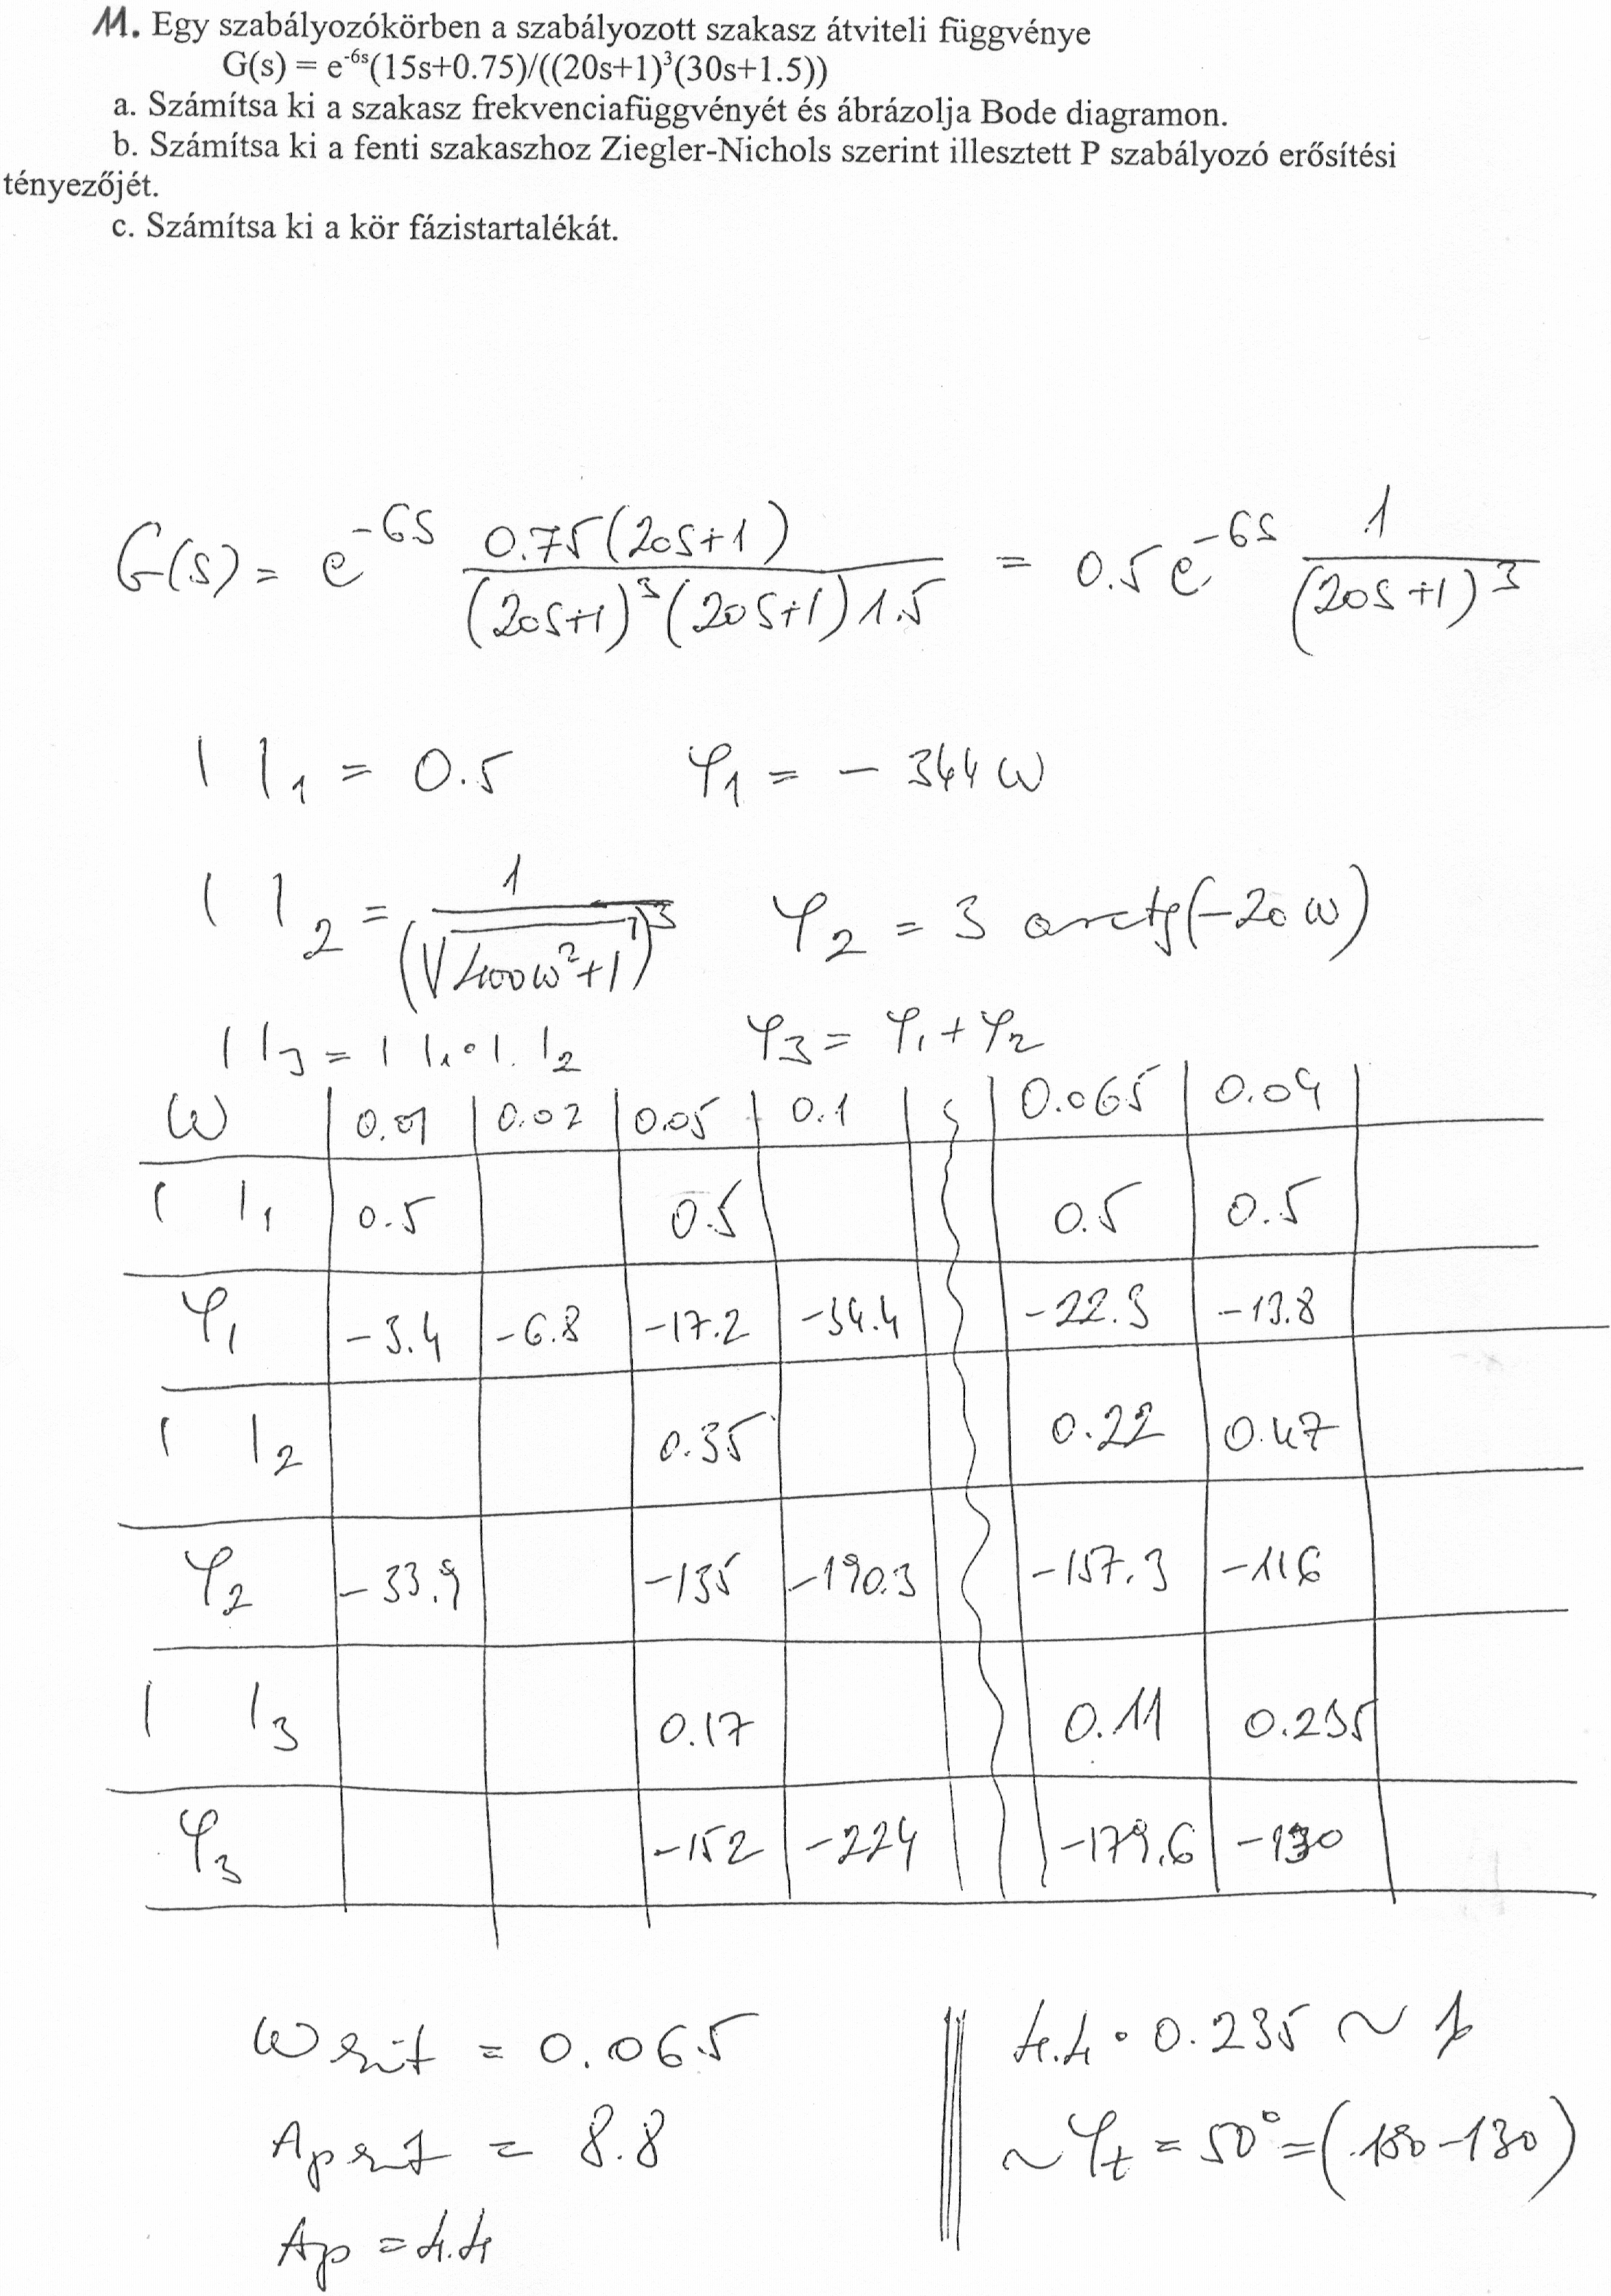 M. Egy szabályozókörben a szabályozott szakasz átviteli függvénye
G(s) = e⁻⁶ˢ(15s+0.75)/((20s+1)³(30s+1.5))
a. Számítsa ki a szakasz frekvenciafüggvényét és ábrázolja Bode diagramon.
b. Számítsa ki a fenti szakaszhoz Ziegler-Nichols szerint illesztett P szabályozó erősítési
tényezőjét.
c. Számítsa ki a kör fázistartalékát.
G(s) = e⁻⁶ˢ 0.75(20s+1) / ((20s+1)³(20s+1)1.5) = 0.5 e⁻⁶ˢ 1/(20s+1)³
| |₁ = 0.5 φ₁ = - 344 ω
| |₂ = 1/(√(400ω²+1))³ φ₂ = 3 arctg(-20ω)
| |₃ = | |₁ · | |₂ φ₃ = φ₁ + φ₂
ω 0.01 0.02 0.05 0.1 0.065 0.04
| |₁ 0.5 0.5 0.5 0.5
φ₁ -3.4 -6.8 -17.2 -34.4 -22.3 -13.8
| |₂ 0.35 0.22 0.47
φ₂ -33.9 -135 -190.3 -157.3 -116
| |₃ 0.17 0.11 0.235
φ₃ -152 -224 -179.6 -130
ω krit = 0.065 4.4 · 0.235 ~ 1
Ap krit = 8.8 ~ φt = 50° = (180-130)
Ap = 4.4